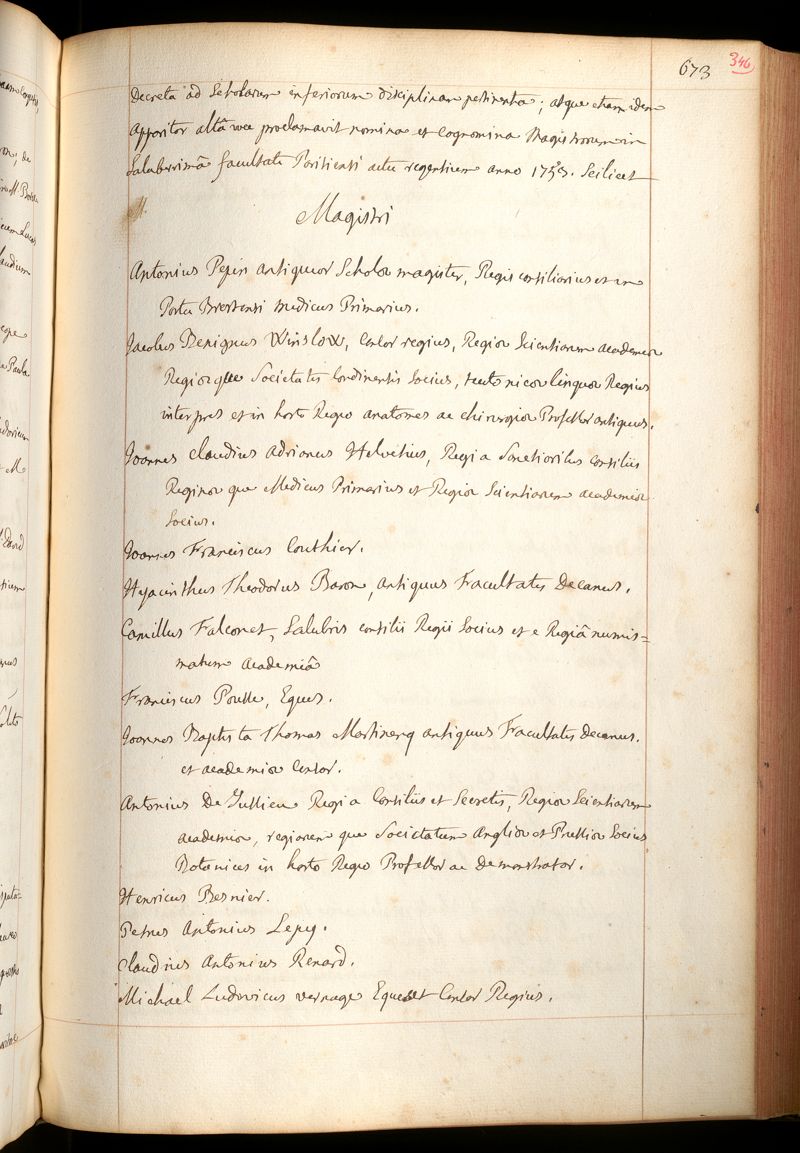 673 346
Decreta ad Scholarum inferiorum disciplinam pertinentia; atque etiam idem
apparitor altâ voce proclamavit nomina et cognomina Magistrorum in
Saluberrimâ facultate Parisiensi actu regentium anno 1753. Scilicet
M.
Magistri
Antonius Pepin antiquior Scholæ magister, Regis consiliarius et in
Portu Brestensi medicus Primarius.
Jacobus Benignus Winslow, Censor regius, Regiæ Scientiarum academiæ
Regiæque Societatis Londinensis Socius, teutonicæ linguæ Regius
interpres et in horto Regio anatomes ac chirurgiæ Professor antiquus.
Joannes claudius adrianus Helvetius, Regi a Sanctioribus consiliis
Reginæ que Medicus Primarius et Regiæ Scientiarum academiæ
Socius.
Joannes Franciscus Couthier.
Hyacinthus Theodorus Baron, antiquus Facultatis Decanus.
Camillus Falconet, Salubris consilii Regii Socius et e Regiâ numis=
matum academiâ
Franciscus Pousse, Eques.
Joannes Baptista Thomas Martinenq antiquus Facultatis decanus.
et academiæ Censor.
Antonius De Jussieu Regi a Consiliis et Secretis, Regiæ Scientiarum
academiæ, regiarum que Societatum Angliæ et Prussiæ Socius
Botanices in horto Regio Professor ac demonstrator.
Henricus Besnier.
Petrus Antonius Lepy.
Claudius Antonius Renard.
Michael Ludovicus vernage Eques et Censor Regius.